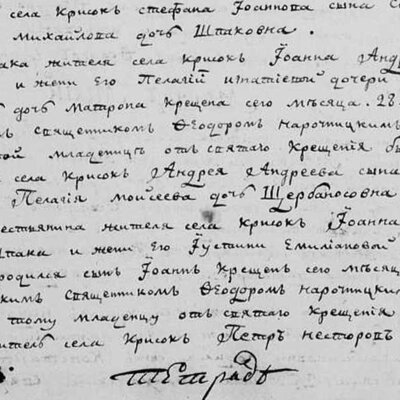 села Крисокъ Стефана Іоаннова сына
Михайлова дочь Шпаковна.
жителя села Крисокъ Іоанна
и жени его Пелагіи Игнатіевой дочери
дочь Матрона крещена сего мѣсяца. 28.
священникомъ Ѳеодоромъ Нарочтицкимъ
младенцу отъ святаго крещенія
села Крисокъ Андрея Андреева сына
Пелагія Моисеева дочь Щербаносовна
жителя села Крисокъ Іоанна
Шпака и жени его Іустини Емиліановой
родился сынъ Іоаннъ крещенъ сего мѣсяц
священникомъ Ѳеодоромъ Нарочтицки
тому младенцу отъ святаго крещенія
житель села Крисокъ Петръ Несторовъ